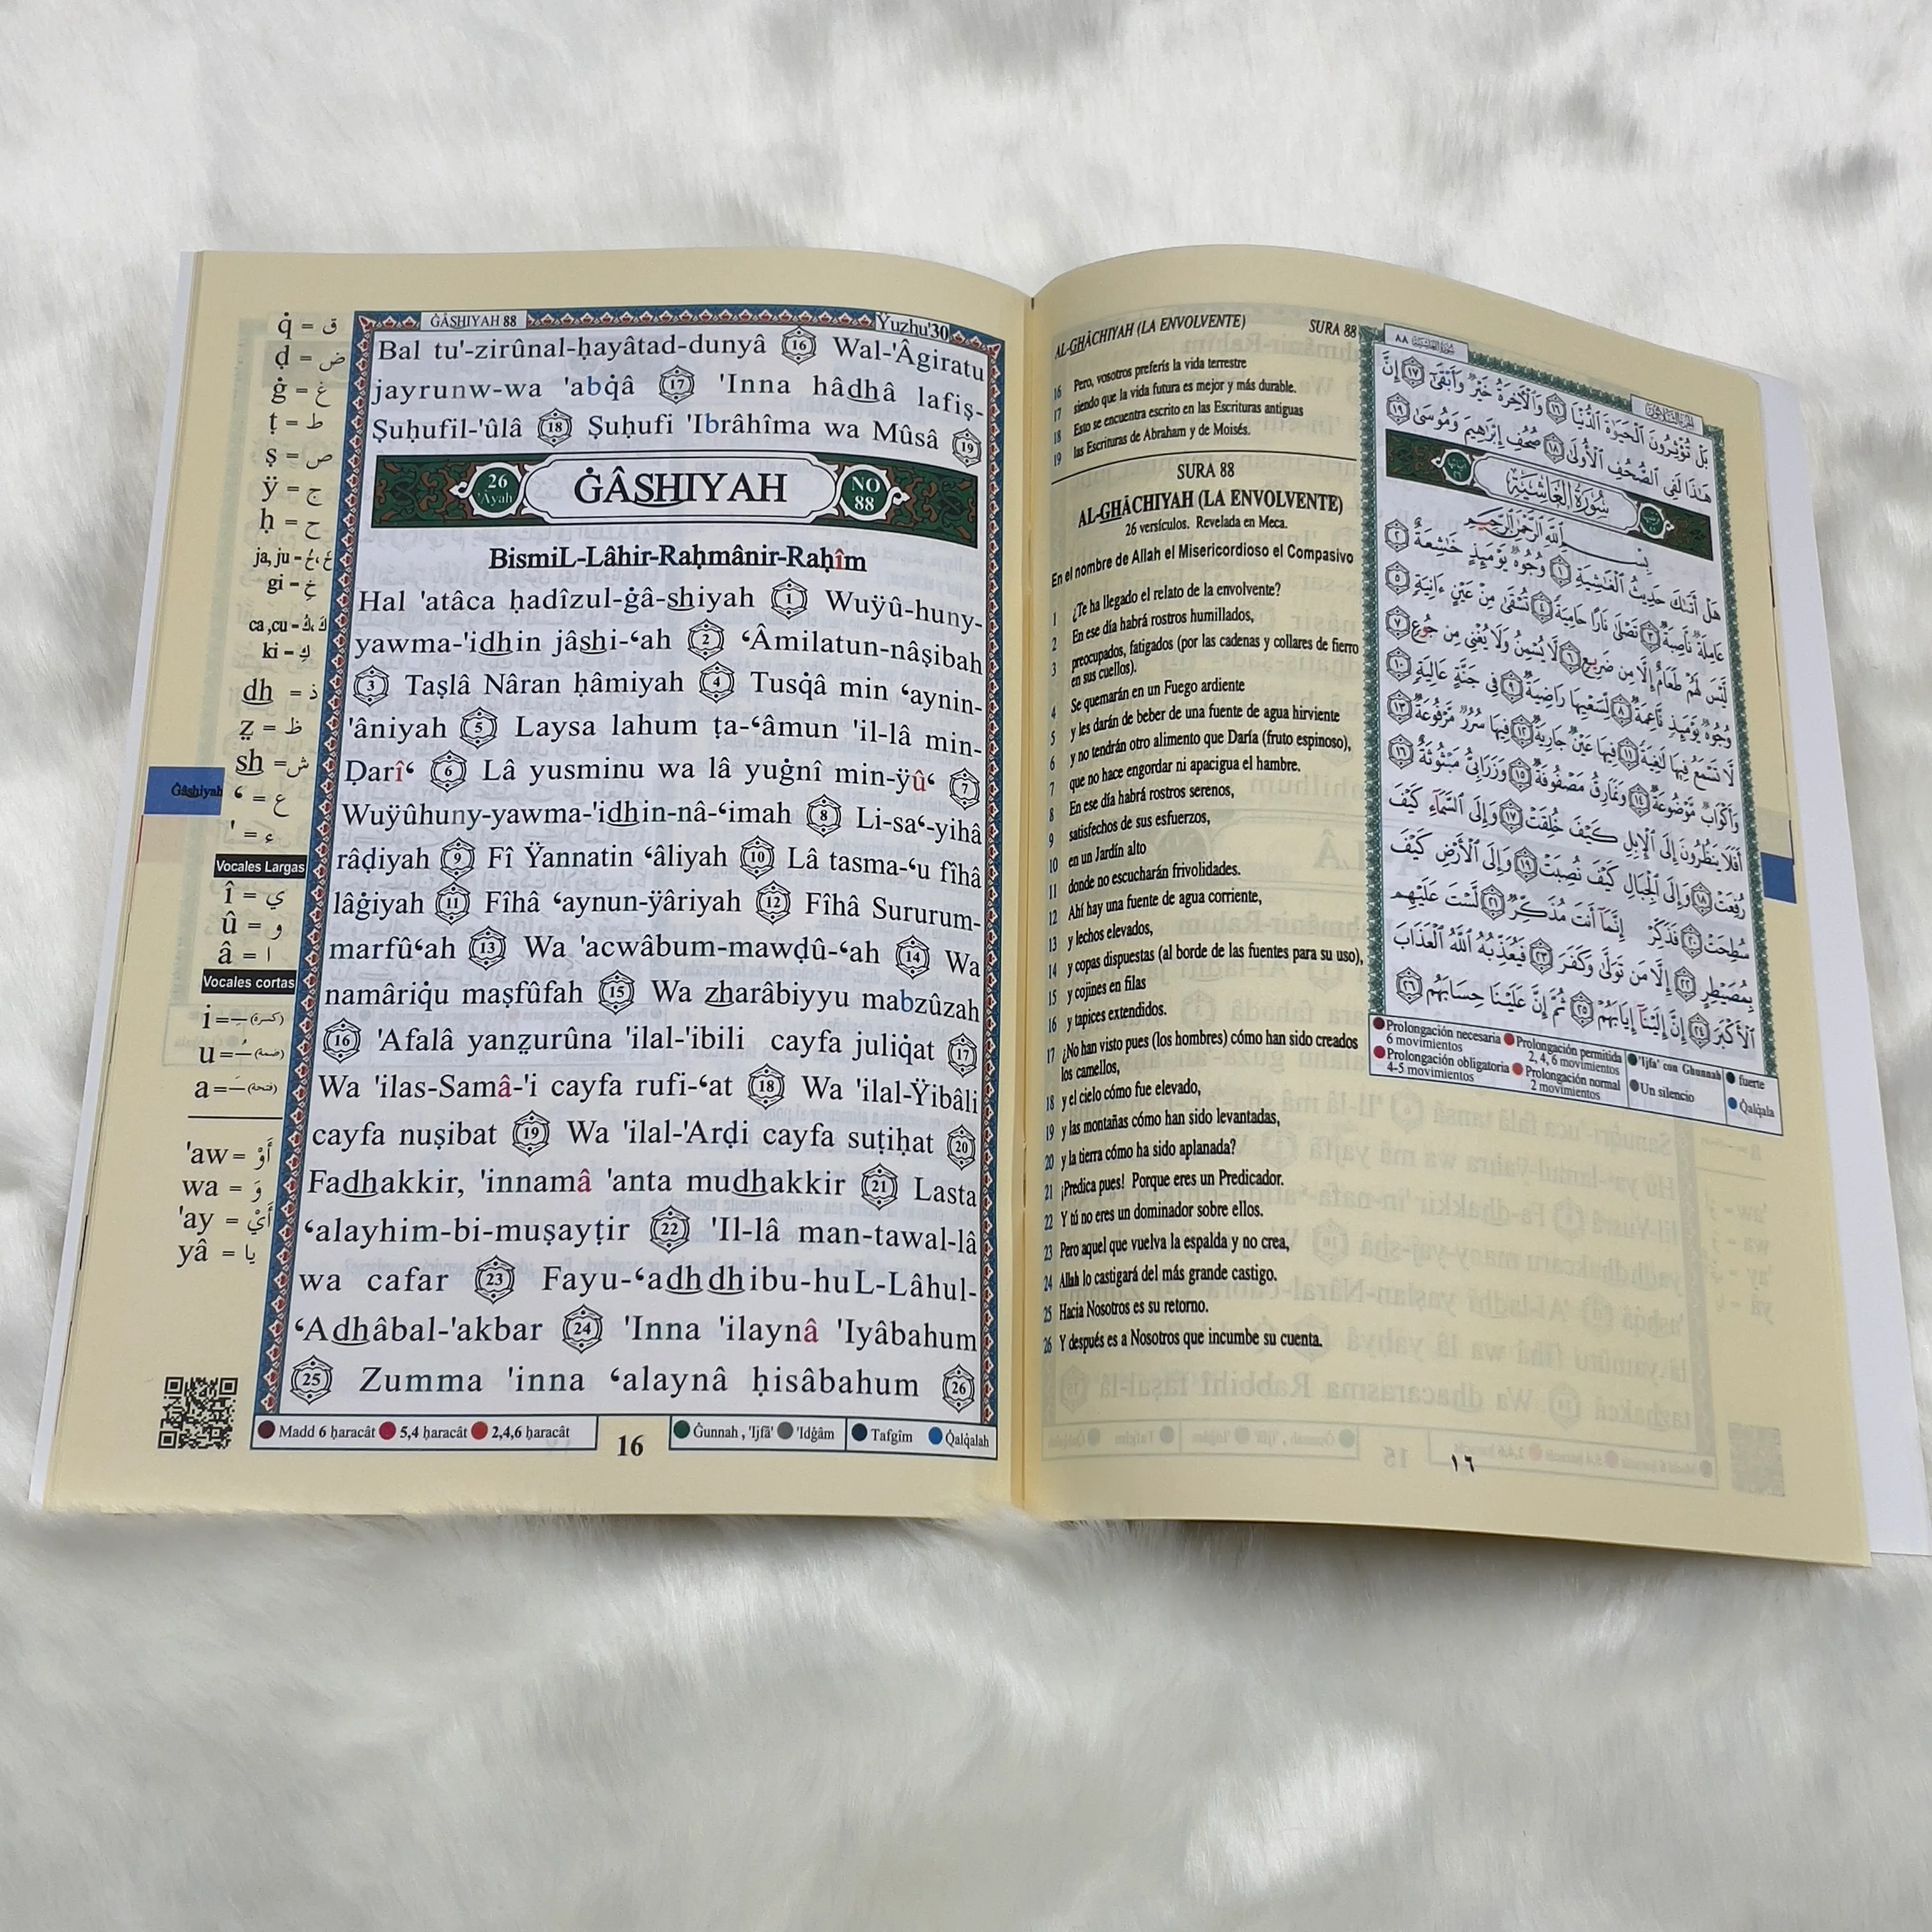 q̇ = ق
ḍ = ض
ġ = غ
ṭ = ط
ṣ = ص
ÿ = ج
ḥ = ح
ja, ju - خَ، خُ
gi - خِ
ca ,cu - كَ، كُ
ki - كِ
dh = ذ
ẓ = ظ
sh = ش
ʿ = ع
' = ء
Vocales Largas
î = ي
û = و
â = ا
Vocales cortas
i = ـِ (كسرة)
u = ـُ (ضمة)
a = ـَ (فتحة)
'aw = أَوْ
wa = وَ
'ay = أَيْ
yâ = يا
Ġâshiyah
ĠÂSHIYAH 88
Ÿuzhu'30
Bal tu'-zirûnal-ḥayâtad-dunyâ 16 Wal-'Âgiratu
jayrunw-wa 'abq̇â 17 'Inna hâdhâ lafiṣ-
Ṣuḥufil-'ûlâ 18 Ṣuḥufi 'Ibrâhîma wa Mûsâ 19
26 'Âyah
ĠÂSHIYAH
NO 88
BismiL-Lâhir-Raḥmânir-Raḥîm
Hal 'atâca ḥadîzul-ġâ-shiyah 1 Wuÿû-huny-
yawma-'idhin jâshi-ʿah 2 ʿÂmilatun-nâṣibah
3 Taṣlâ Nâran ḥâmiyah 4 Tusq̇â min ʿaynin-
'âniyah 5 Laysa lahum ṭa-ʿâmun 'il-lâ min-
Ḍarîʿ 6 Lâ yusminu wa lâ yuġnî min-ÿûʿ 7
Wuÿûhuny-yawma-'idhin-nâ-ʿimah 8 Li-saʿ-yihâ
râḍiyah 9 Fî Ÿannatin ʿâliyah 10 Lâ tasma-ʿu fîhâ
lâġiyah 11 Fîhâ ʿaynun-ÿâriyah 12 Fîhâ Sururum-
marfûʿah 13 Wa 'acwâbum-mawḍû-ʿah 14 Wa
namâriq̇u maṣfûfah 15 Wa zharâbiyyu mabzûzah
16 'Afalâ yanẓurûna 'ilal-'ibili cayfa juliq̇at 17
Wa 'ilas-Samâ-'i cayfa rufi-ʿat 18 Wa 'ilal-Ÿibâli
cayfa nuṣibat 19 Wa 'ilal-'Arḍi cayfa suṭiḥat 20
Fadhakkir, 'innamâ 'anta mudhakkir 21 Lasta
ʿalayhim-bi-muṣayṭir 22 'Il-lâ man-tawal-lâ
wa cafar 23 Fayu-ʿadhdhibu-huL-Lâhul-
ʿAdhâbal-'akbar 24 'Inna 'ilaynâ 'Iyâbahum
25 Zumma 'inna ʿalaynâ ḥisâbahum 26
Madd 6 ḥaracât 5,4 ḥaracât 2,4,6 ḥaracât
16
Ġunnah , 'Ijfâ' 'Idġâm
Tafgîm Q̇alq̇alah
AL-GHĀCHIYAH (LA ENVOLVENTE) SURA 88
16 Pero, vosotros preferís la vida terrestre
17 siendo que la vida futura es mejor y más durable.
18 Esto se encuentra escrito en las Escrituras antiguas
19 las Escrituras de Abraham y de Moisés.
SURA 88
AL-GHĀCHIYAH (LA ENVOLVENTE)
26 versículos. Revelada en Meca.
En el nombre de Allah el Misericordioso el Compasivo
1 ¿Te ha llegado el relato de la envolvente?
2 En ese día habrá rostros humillados,
3 preocupados, fatigados (por las cadenas y collares de fierro
en sus cuellos).
4 Se quemarán en un Fuego ardiente
5 y les darán de beber de una fuente de agua hirviente
6 y no tendrán otro alimento que Daría (fruto espinoso),
7 que no hace engordar ni apacigua el hambre.
8 En ese día habrá rostros serenos,
9 satisfechos de sus esfuerzos,
10 en un Jardín alto
11 donde no escucharán frivolidades.
12 Ahí hay una fuente de agua corriente,
13 y lechos elevados,
14 y copas dispuestas (al borde de las fuentes para su uso),
15 y cojines en filas
16 y tapices extendidos.
17 ¿No han visto pues (los hombres) cómo han sido creados
los camellos,
18 y el cielo cómo fue elevado,
19 y las montañas cómo han sido levantadas,
20 y la tierra cómo ha sido aplanada?
21 ¡Predica pues! Porque eres un Predicador.
22 Y tú no eres un dominador sobre ellos.
23 Pero aquel que vuelva la espalda y no crea,
24 Allah lo castigará del más grande castigo.
25 Hacia Nosotros es su retorno.
26 Y después es a Nosotros que incumbe su cuenta.
سُورَةُ الغَاشِيَةِ ٨٨
بَلْ تُؤْثِرُونَ ٱلْحَيَوٰةَ ٱلدُّنْيَا ١٦ وَٱلْءَاخِرَةُ خَيْرٌ وَأَبْقَىٰٓ ١٧ إِنَّ
هَـٰذَا لَفِى ٱلصُّحُفِ ٱلْأُولَىٰ ١٨ صُحُفِ إِبْرَٰهِيمَ وَمُوسَىٰ ١٩
سُورَةُ الغَاشِيَةِ
بِسْمِ ٱللَّهِ ٱلرَّحْمَـٰنِ ٱلرَّحِيمِ
هَلْ أَتَىٰكَ حَدِيثُ ٱلْغَـٰشِيَةِ ١ وُجُوهٌ يَوْمَئِذٍ خَـٰشِعَةٌ ٢
عَامِلَةٌ نَّاصِبَةٌ ٣ تَصْلَىٰ نَارًا حَامِيَةً ٤ تُسْقَىٰ مِنْ عَيْنٍ ءَانِيَةٍ ٥
لَّيْسَ لَهُمْ طَعَامٌ إِلَّا مِن ضَرِيعٍ ٦ لَّا يُسْمِنُ وَلَا يُغْنِى مِن جُوعٍ ٧
وُجُوهٌ يَوْمَئِذٍ نَّاعِمَةٌ ٨ لِّسَعْيِهَا رَاضِيَةٌ ٩ فِى جَنَّةٍ عَالِيَةٍ ١٠
لَّا تَسْمَعُ فِيهَا لَـٰغِيَةً ١١ فِيهَا عَيْنٌ جَارِيَةٌ ١٢ فِيهَا سُرُرٌ مَّرْفُوعَةٌ ١٣
وَأَكْوَابٌ مَّوْضُوعَةٌ ١٤ وَنَمَارِقُ مَصْفُوفَةٌ ١٥ وَزَرَابِىُّ مَبْثُوثَةٌ ١٦
أَفَلَا يَنظُرُونَ إِلَى ٱلْإِبِلِ كَيْفَ خُلِقَتْ ١٧ وَإِلَى ٱلسَّمَآءِ كَيْفَ
رُفِعَتْ ١٨ وَإِلَى ٱلْجِبَالِ كَيْفَ نُصِبَتْ ١٩ وَإِلَى ٱلْأَرْضِ كَيْفَ
سُطِحَتْ ٢٠ فَذَكِّرْ إِنَّمَآ أَنتَ مُذَكِّرٌ ٢١ لَّسْتَ عَلَيْهِم
بِمُصَيْطِرٍ ٢٢ إِلَّا مَن تَوَلَّىٰ وَكَفَرَ ٢٣ فَيُعَذِّبُهُ ٱللَّهُ ٱلْعَذَابَ
ٱلْأَكْبَرَ ٢٤ إِنَّ إِلَيْنَآ إِيَابَهُمْ ٢٥ ثُمَّ إِنَّ عَلَيْنَا حِسَابَهُم ٢٦
Prolongación necesaria 6 movimientos
Prolongación permitida 2, 4, 6 movimientos
'Ijfa' con Ghunnah
fuerte
Prolongación obligatoria 4-5 movimientos
Prolongación normal 2 movimientos
Un silencio
Q̇alq̇ala
١٦